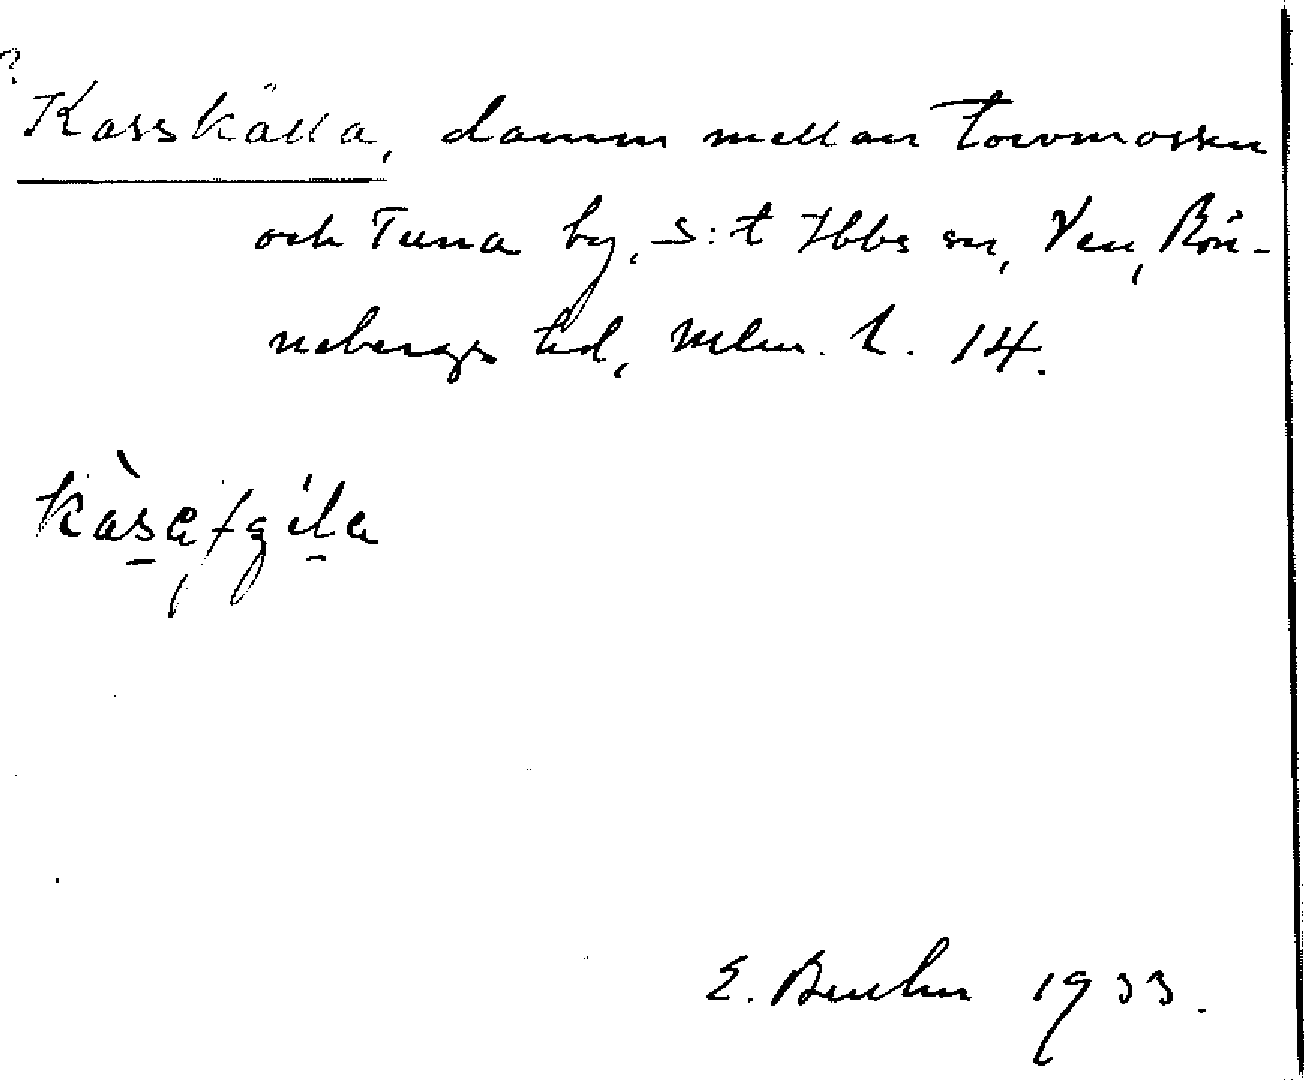 ?
Kasskälla, damm mellan Torvmossen
och Tuna by, S:t Ibbs sn, Ven, Rön-
nebergs hd, Mlm. l. 14.
E. Bruhn 1933.